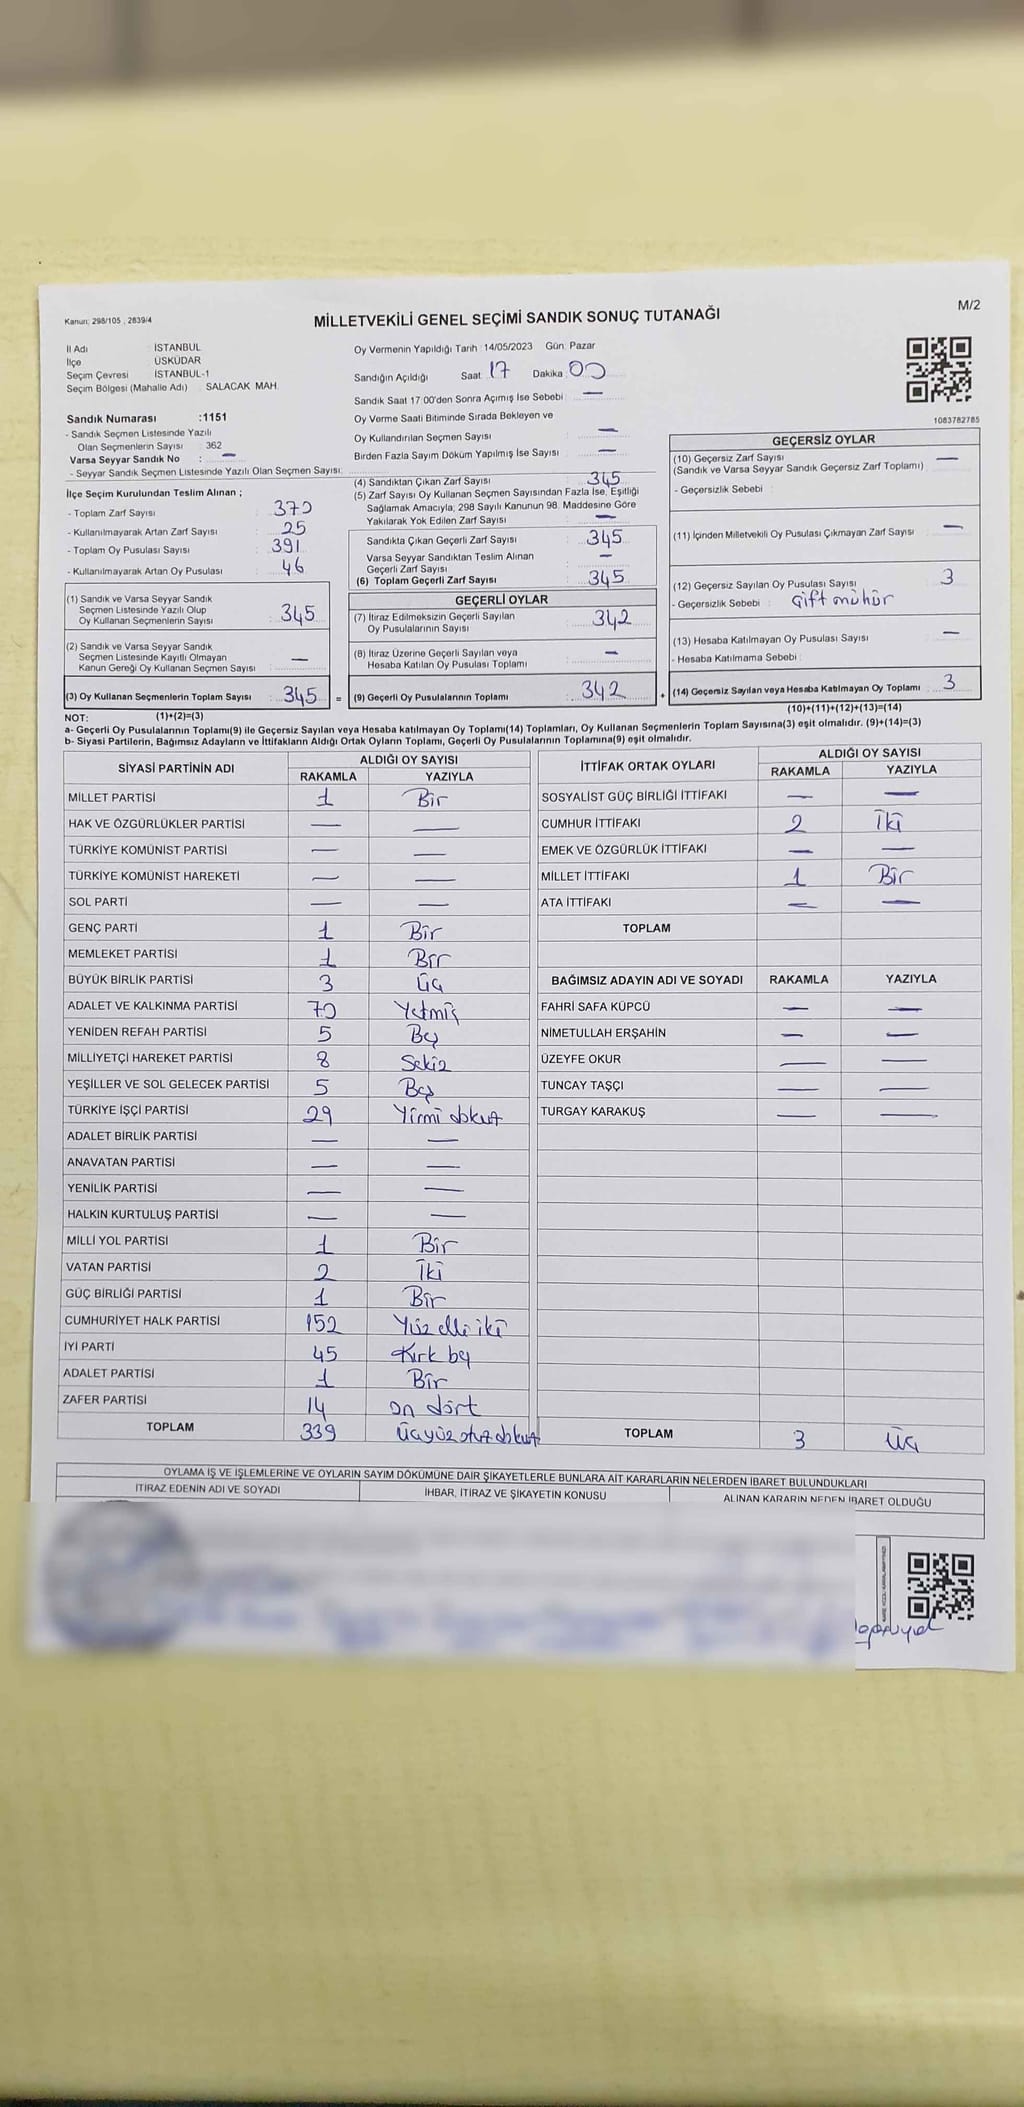 Kanun: 298/105 , 2839/4
M/2
MİLLETVEKİLİ GENEL SEÇİMİ SANDIK SONUÇ TUTANAĞI
İl Adı İSTANBUL
İlçe ÜSKÜDAR
Seçim Çevresi İSTANBUL-1
Seçim Bölgesi (Mahalle Adı) SALACAK MAH.
Sandık Numarası :1151
- Sandık Seçmen Listesinde Yazılı
Olan Seçmenlerin Sayısı : 362
Varsa Seyyar Sandık No : —
- Seyyar Sandık Seçmen Listesinde Yazılı Olan Seçmen Sayısı:
Oy Vermenin Yapıldığı Tarih :14/05/2023 Gün: Pazar
Sandığın Açıldığı Saat 17 Dakika 00
Sandık Saat 17:00'den Sonra Açımış İse Sebebi : —
Oy Verme Saati Bitiminde Sırada Bekleyen ve
Oy Kullandırılan Seçmen Sayısı : —
Birden Fazla Sayım Döküm Yapılmış İse Sayısı : —
1083782785
İlçe Seçim Kurulundan Teslim Alınan ;
- Toplam Zarf Sayısı : 370
- Kullanılmayarak Artan Zarf Sayısı : 25
- Toplam Oy Pusulası Sayısı : 391
- Kullanılmayarak Artan Oy Pusulası : 46
(1) Sandık ve Varsa Seyyar Sandık
Seçmen Listesinde Yazılı Olup
Oy Kullanan Seçmenlerin Sayısı : 345
(2) Sandık ve Varsa Seyyar Sandık
Seçmen Listesinde Kayıtlı Olmayan
Kanun Gereği Oy Kullanan Seçmen Sayısı : —
(3) Oy Kullanan Seçmenlerin Toplam Sayısı : 345 =
(4) Sandıktan Çıkan Zarf Sayısı : 345
(5) Zarf Sayısı Oy Kullanan Seçmen Sayısından Fazla İse, Eşitliği
Sağlamak Amacıyla, 298 Sayılı Kanunun 98. Maddesine Göre
Yakılarak Yok Edilen Zarf Sayısı : —
Sandıkta Çıkan Geçerli Zarf Sayısı : 345
Varsa Seyyar Sandıktan Teslim Alınan
Geçerli Zarf Sayısı : —
(6) Toplam Geçerli Zarf Sayısı : 345
GEÇERLİ OYLAR
(7) İtiraz Edilmeksizin Geçerli Sayılan
Oy Pusulalarının Sayısı : 342
(8) İtiraz Üzerine Geçerli Sayılan veya
Hesaba Katılan Oy Pusulası Toplamı : —
(9) Geçerli Oy Pusulalarının Toplamı : 342 +
GEÇERSİZ OYLAR
(10) Geçersiz Zarf Sayısı : —
(Sandık ve Varsa Seyyar Sandık Geçersiz Zarf Toplamı)
- Geçersizlik Sebebi :
(11) İçinden Milletvekili Oy Pusulası Çıkmayan Zarf Sayısı : —
(12) Geçersiz Sayılan Oy Pusulası Sayısı : 3
- Geçersizlik Sebebi : Çift mühür
(13) Hesaba Katılmayan Oy Pusulası Sayısı : —
- Hesaba Katılmama Sebebi :
(14) Geçersiz Sayılan veya Hesaba Katılmayan Oy Toplamı : 3
NOT: (1)+(2)=(3) (10)+(11)+(12)+(13)=(14)
a- Geçerli Oy Pusulalarının Toplamı(9) ile Geçersiz Sayılan veya Hesaba katılmayan Oy Toplamı(14) Toplamları, Oy Kullanan Seçmenlerin Toplam Sayısına(3) eşit olmalıdır. (9)+(14)=(3)
b- Siyasi Partilerin, Bağımsız Adayların ve İttifakların Aldığı Ortak Oyların Toplamı, Geçerli Oy Pusulalarının Toplamına(9) eşit olmalıdır.
SİYASİ PARTİNİN ADI ALDIĞI OY SAYISI
RAKAMLA YAZIYLA
MİLLET PARTİSİ 1 Bir
HAK VE ÖZGÜRLÜKLER PARTİSİ — —
TÜRKİYE KOMÜNİST PARTİSİ — —
TÜRKİYE KOMÜNİST HAREKETİ — —
SOL PARTİ — —
GENÇ PARTİ 1 Bir
MEMLEKET PARTİSİ 1 Bir
BÜYÜK BİRLİK PARTİSİ 3 Üç
ADALET VE KALKINMA PARTİSİ 70 Yetmiş
YENİDEN REFAH PARTİSİ 5 Beş
MİLLİYETÇİ HAREKET PARTİSİ 8 Sekiz
YEŞİLLER VE SOL GELECEK PARTİSİ 5 Beş
TÜRKİYE İŞÇİ PARTİSİ 29 Yirmi dokuz
ADALET BİRLİK PARTİSİ — —
ANAVATAN PARTİSİ — —
YENİLİK PARTİSİ — —
HALKIN KURTULUŞ PARTİSİ — —
MİLLİ YOL PARTİSİ 1 Bir
VATAN PARTİSİ 2 İki
GÜÇ BİRLİĞİ PARTİSİ 1 Bir
CUMHURİYET HALK PARTİSİ 152 Yüz elli iki
İYİ PARTİ 45 Kırk beş
ADALET PARTİSİ 1 Bir
ZAFER PARTİSİ 14 on dört
TOPLAM 339 Üçyüz otuz dokuz
İTTİFAK ORTAK OYLARI ALDIĞI OY SAYISI
RAKAMLA YAZIYLA
SOSYALİST GÜÇ BİRLİĞİ İTTİFAKI — —
CUMHUR İTTİFAKI 2 İki
EMEK VE ÖZGÜRLÜK İTTİFAKI — —
MİLLET İTTİFAKI 1 Bir
ATA İTTİFAKI — —
TOPLAM
BAĞIMSIZ ADAYIN ADI VE SOYADI RAKAMLA YAZIYLA
FAHRİ SAFA KÜPCÜ — —
NİMETULLAH ERŞAHİN — —
ÜZEYFE OKUR — —
TUNCAY TAŞÇI — —
TURGAY KARAKUŞ — —
TOPLAM 3 Üç
OYLAMA İŞ VE İŞLEMLERİNE VE OYLARIN SAYIM DÖKÜMÜNE DAİR ŞİKAYETLERLE BUNLARA AİT KARARLARIN NELERDEN İBARET BULUNDUKLARI
İTİRAZ EDENİN ADI VE SOYADI İHBAR, İTİRAZ VE ŞİKAYETİN KONUSU ALINAN KARARIN NEDEN İBARET OLDUĞU